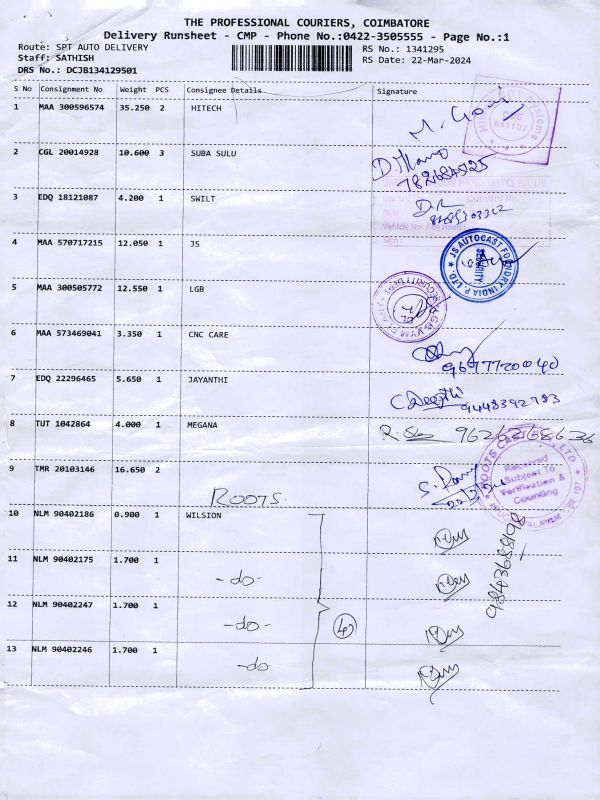 THE PROFESSIONAL COURIERS, COIMBATORE
Delivery Runsheet - CMP - Phone No.:0422-3505555 - Page No.:1
Route: SPT AUTO DELIVERY
RS No.: 1341295
Staff: SATHISH
RS Date: 22-Mar-2024
DRS No.: DCJB134129501
S No Consignment No Weight PCS Consignee Details Signature
1 MAA 300596574 35.250 2 HITECH
2 CGL 20014928 10.600 3 SUBA SULU
3 EDQ 18121087 4.200 1 SWILT
4 MAA 570717215 12.050 1 JS
JS AUTOCAST FOUNDRY INDIA P. LTD. SECURITY
5 MAA 300505772 12.550 1 LGB
6 MAA 573469041 3.350 1 CNC CARE
9697720040
7 EDQ 22296465 5.650 1 JAYANTHI
9448392783
8 TUT 1042864 4.000 1 MEGANA
9 TMR 20103146 16.650 2 ROOTS
Received
Subject To
Verification &
Counting
10 NLM 90402186 0.900 1 WILSION
9843688198
11 NLM 90402175 1.700 1 -do-
12 NLM 90402247 1.700 1 -do-
13 NLM 90402246 1.700 1 -do-